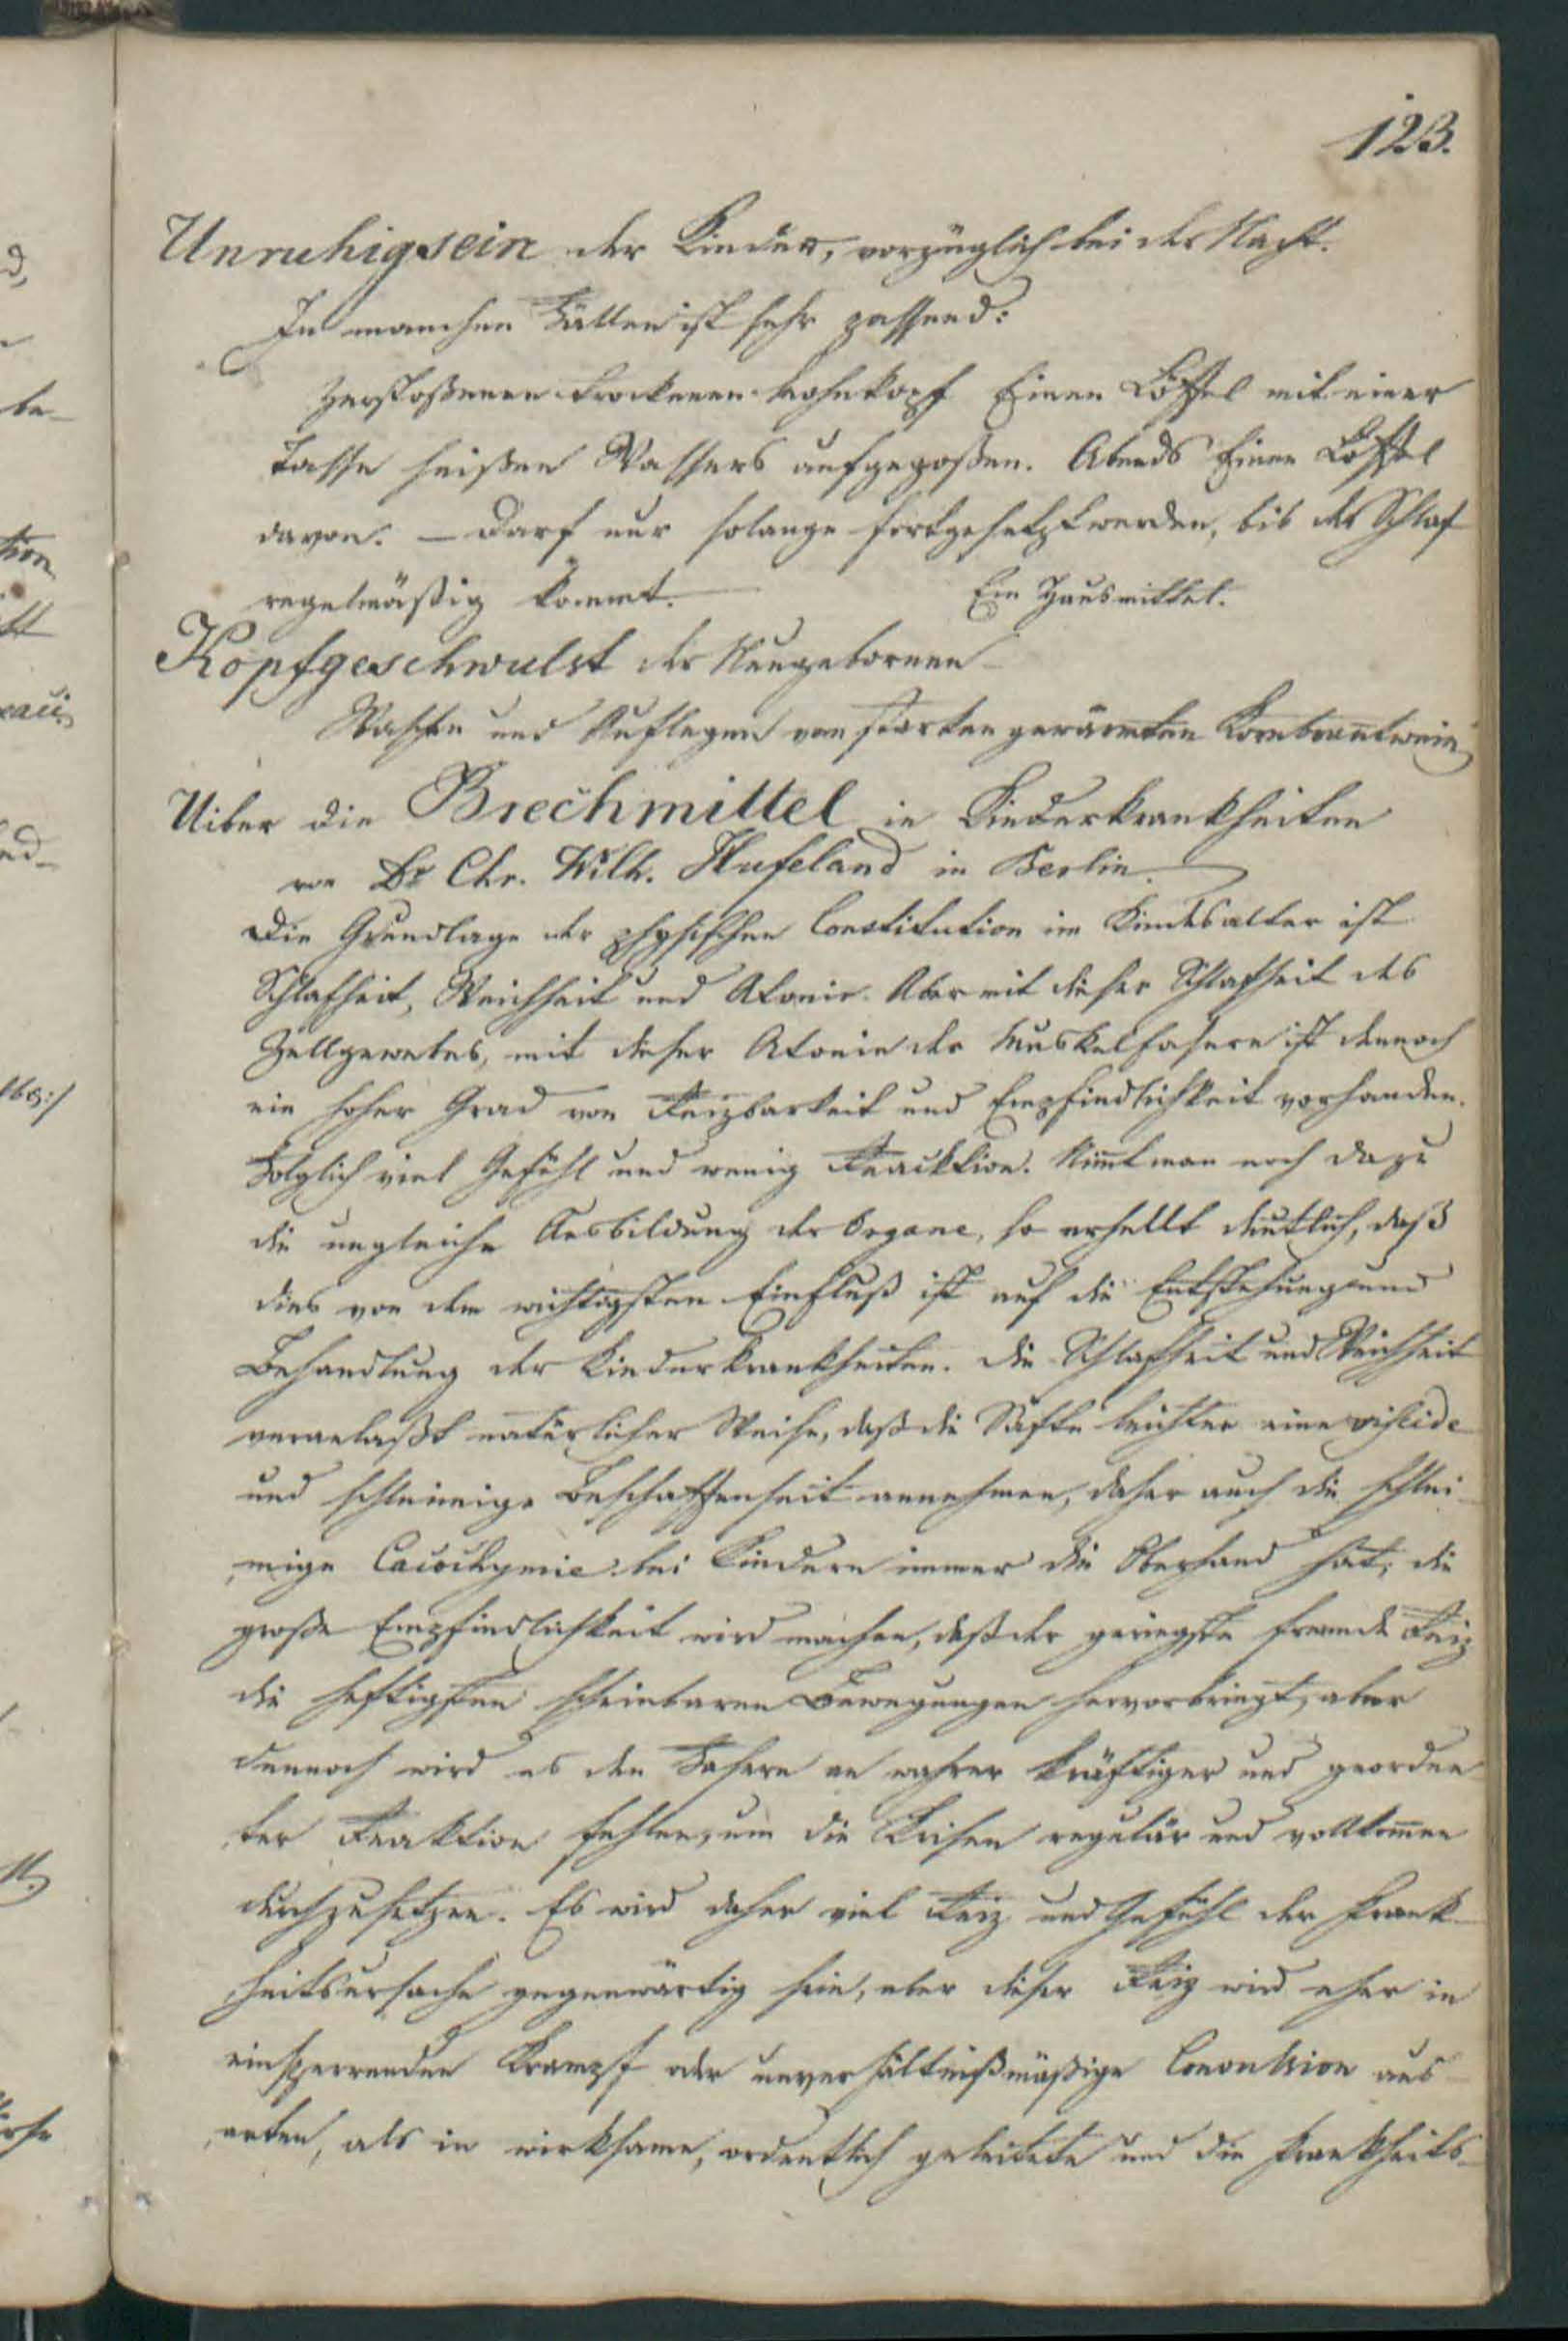 123.
Unruhigsein der Kinder, vorzüglich bei der Nacht.
In manchen Fällen ist sehr passend:
Zerstoßenen trockenen Mohnkopf Einen Löffel mit einer
Tasse heißen Wassers aufgegoßen. Abends Einen Löffel
davon. – Darf nur solange fortgesetzt werden, bis der Schlaf
regelmäßig kommt. — Ein Hausmittel.
Kopfgeschwulst der Neugebornen
Waschen und Auflegen von starken gewärmten Kornbrantwein
Uiber die Brechmittel in Kinderkrankheiten
von Dr Chr. Wilh. Hufeland in Berlin.
Die Grundlage der physischen Constitution im Kindesalter ist
Schlafheit, Weichheit und Atonie. Aber mit dieser Schlafheit des
Zellgewebes, mit dieser Atonie der Muskelfasern ist dennoch
ein hoher Grad von Reizbarkeit und Empfindlichkeit vorhanden.
Folglich viel Gefühl und wenig Reacktion. Nimt man noch dazu
die ungleiche Ausbildung der Organe, so erhellt deutlich, daß
dies von dem wichtigsten Einfluß ist auf die Entstehung und
Behandlung der Kinderkrankheiten. Die Schlafheit und Weichheit
veranlaßt natürlicher Weise, daß die Säfte leichter eine viscide
und schleimige Beschaffenheit annehmen, daher auch die schlei-
mige Cacochymie bei Kindern immer die Oberhand hat; die
große Empfindlichkeit wird machen, daß der geringste fremde Reiz
die heftigsten scheinbaren Bewegungen hervorbringt, aber
dennoch wird es den Fasern an wahrer kräftiger und geordne
ter Reaktion fehlen, um die Krisen regulär und vollkomen
durchzusetzen. Es wird daher viel Reiz und Gefühl der Krank-
heitsursache gegenwärtig sein, aber dieser Reiz wird eher in
einsperrenden Krampf oder unverhältnißmäßige Convulsion aus-
arten, als in wirksame, ordentlich geleitete und die Krankheits-